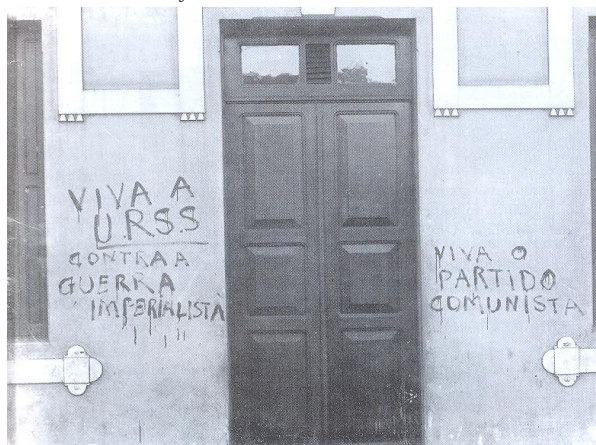 VIVA A
U.RSS
CONTRA A
GUERRA
IMPERIALISTA
VIVA O
PARTIDO
COMUNISTA